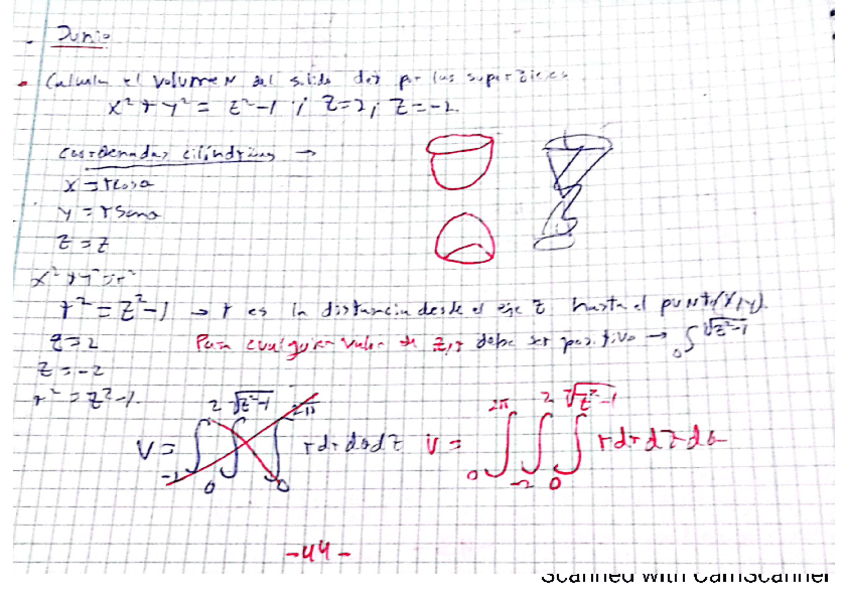 - Junio
• Calcula el volumen del sólido des por las superficies
x² + y² = z² - 1 ; z = 2 ; z = -2
coordenadas cilíndricas →
x = r cos a
y = r sen a
z = z
x² + y² = r²
r² = z² - 1 → r es la distancia desde el eje z hasta el punto (x, y).
z = 2 Para cualquier valor de z, r debe ser positivo → ∫₀^√(z²-1)
z = -2
r² = z² - 1.
V = ∫₋₂² ∫₀^√(z²-1) ∫₀^2π r dr dθ dz V = ∫₀^2π ∫₋₂² ∫₀^√(z²-1) r dr dz dθ
-44-
Scanned with CamScanner